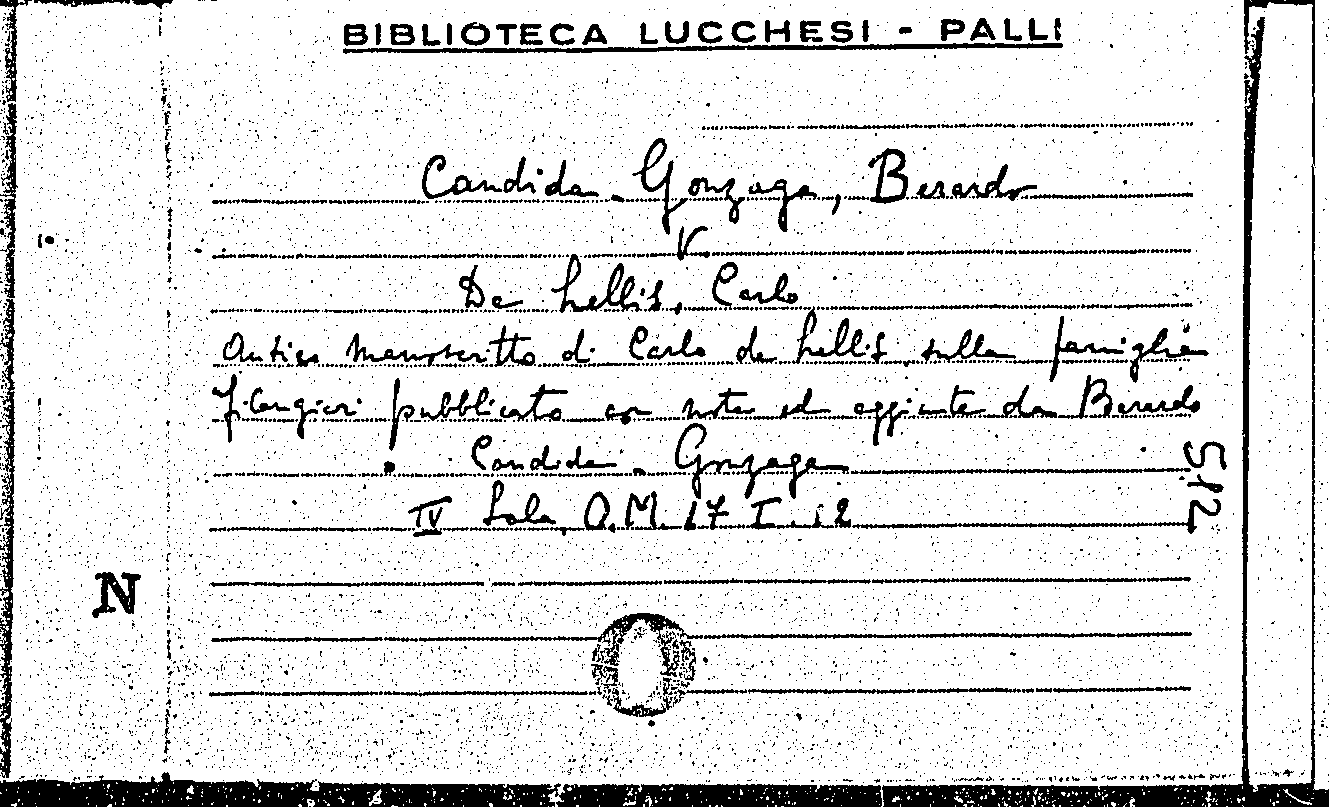 BIBLIOTECA LUCCHESI - PALLI
Candida Gonzaga, Berardo
V.
De Lellis, Carlo
Antico manoscritto di Carlo de Lellis sulla famiglia
Filangieri pubblicato con note ed aggiunte da Berardo
Candida - Gonzaga
IV Sala, O.M. 17 I. 12
512
N